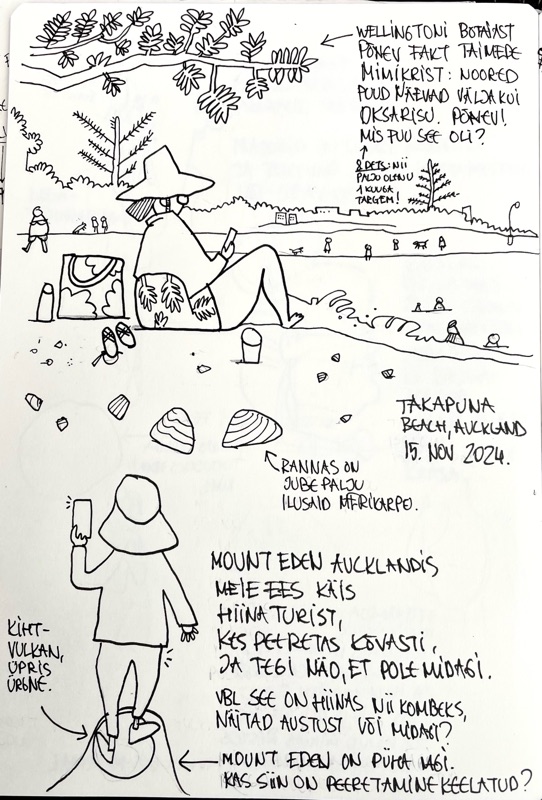 WELLINGTONI BOTAIAST
PÕNEV FAKT TAIMEDE
MIMIKRIST: NOORED
PUUD NÄEVAD VÄLJA KUI
OKSARISU. PÕNEV!
MIS PUU SEE OLI?
8 DETS: NII
PALJU OLEN U
1 KUUGA
TARGEM!
TAKAPUNA
BEACH, AUCKLAND
15. NOV 2024.
RANNAS ON
JUBE PALJU
ILUSAID MERIKARPE.
MOUNT EDEN AUCKLANDIS
MEIE EES KÄIS
HIINA TURIST,
KES PEERETAS KÕVASTI,
JA TEGI NÄO, ET POLE MIDAGI.
VBL SEE ON HIINAS NII KOMBEKS,
NÄITAD AUSTUST VÕI MIDAGI?
KIHT-
VULKAN,
ÜPRIS
ÜRGNE.
MOUNT EDEN ON PÜHA MÄGI.
KAS SIIN ON PEERETAMINE KEELATUD?